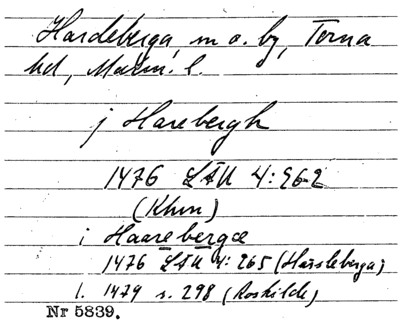 Hardeberga, m o. by, Torna
hd, Malm. l.
j Harebergh
1476 LÄU 4:262
(Khvn)
i Haarebergæ
1476 LÄU 4:265 (Harsleberga)
l. 1479 s. 298 (Roskilde)
Nr 5839.